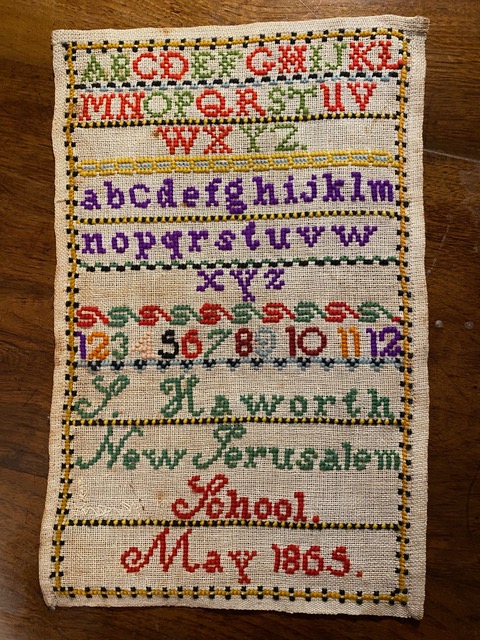 ABCDEFGHIJKL
MNOPQRSTUV
WXYZ.
abcdefghijklm
nopqrstuvw
xyz
1 2 3 4 5 6 7 8 9 10 11 12
S. Haworth
New Jerusalem
School.
May 1865.